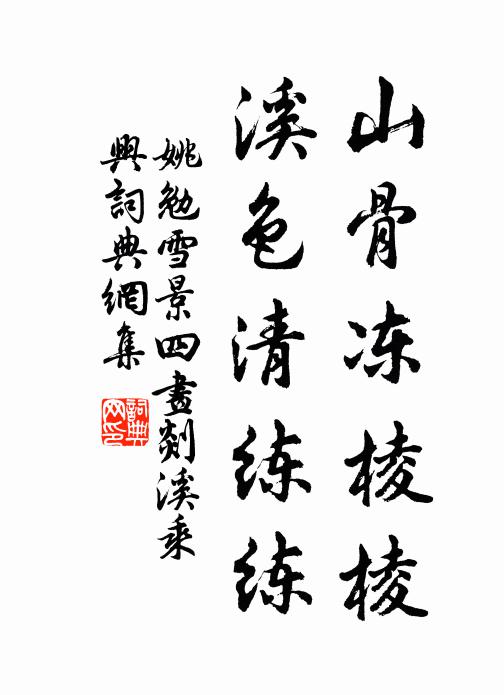 山骨冻棱棱
溪色清练练
姚勉雪景四畫剡溪乘
興詞典網集
詞典
网印